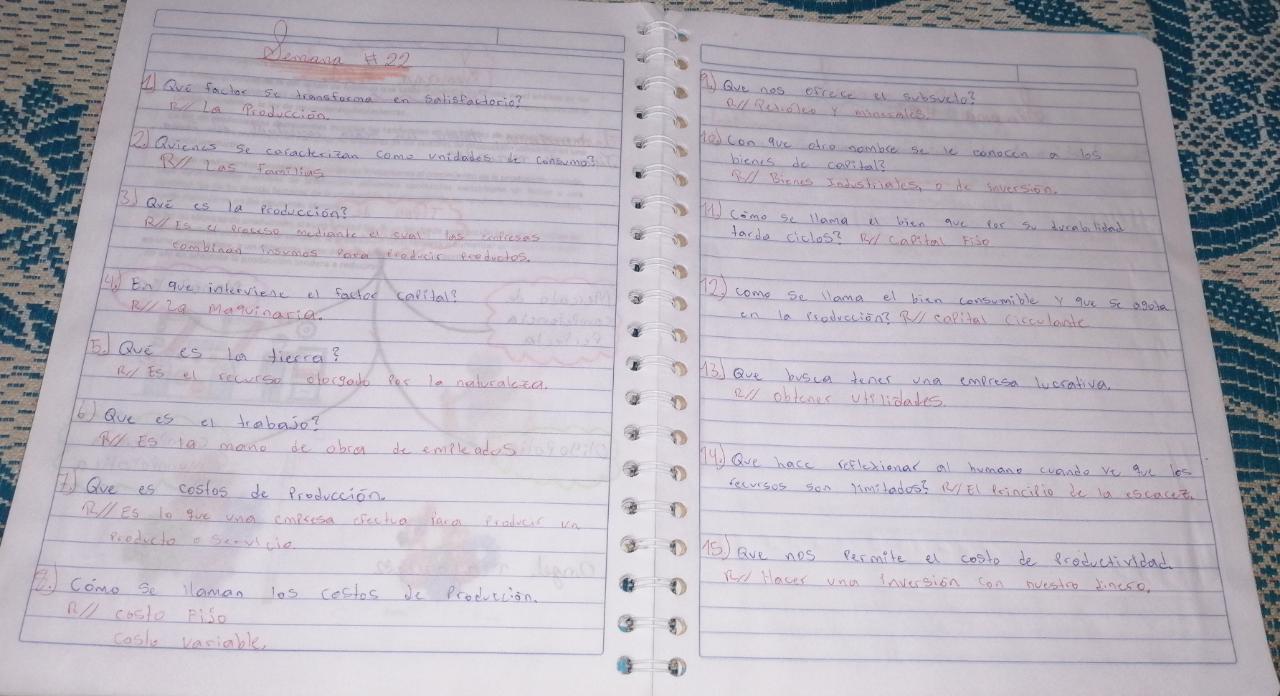 Semana # 22
1) Qué factor se transforma en satisfactorio?
R// La Producción.
2) Quienes se caracterizan como unidades de consumo?
R// Las familias
3) Qué es la Producción?
R// Es el proceso mediante el sual las empresas
combinan insumos para producir productos.
4) En que interviene el factor capital?
R// La maquinaria.
5) Qué es la tierra?
R// Es el recurso otorgado por la naturaleza.
6) Que es el trabajo?
R// Es la mano de obra de empleados
7) Que es costos de Producción.
R// Es lo que una empresa efectua para producir un
Producto o Servicio.
8) Cómo se llaman los costos de Producción.
R// costo Fijo
costo variable.
9) Que nos ofrece el subsuelo?
R// Petróleo y minerales.
10) Con que otro nombre se le conocen a los
bienes de capital?
R// Bienes Industriales, o de inversión.
11) Cómo se llama el bien que por su durabilidad
tarda ciclos? R// Capital Fijo
12) como se llama el bien consumible y que se agota
en la producción? R// capital circulante
13) Que busca tener una empresa lucrativa.
R// obtener utilidades.
14) Que hace reflexionar al humano cuando ve que los
recursos son limitados? R// El Principio de la escacez.
15) Que nos permite el costo de Productividad.
R// Hacer una inversión con nuestro dinero.